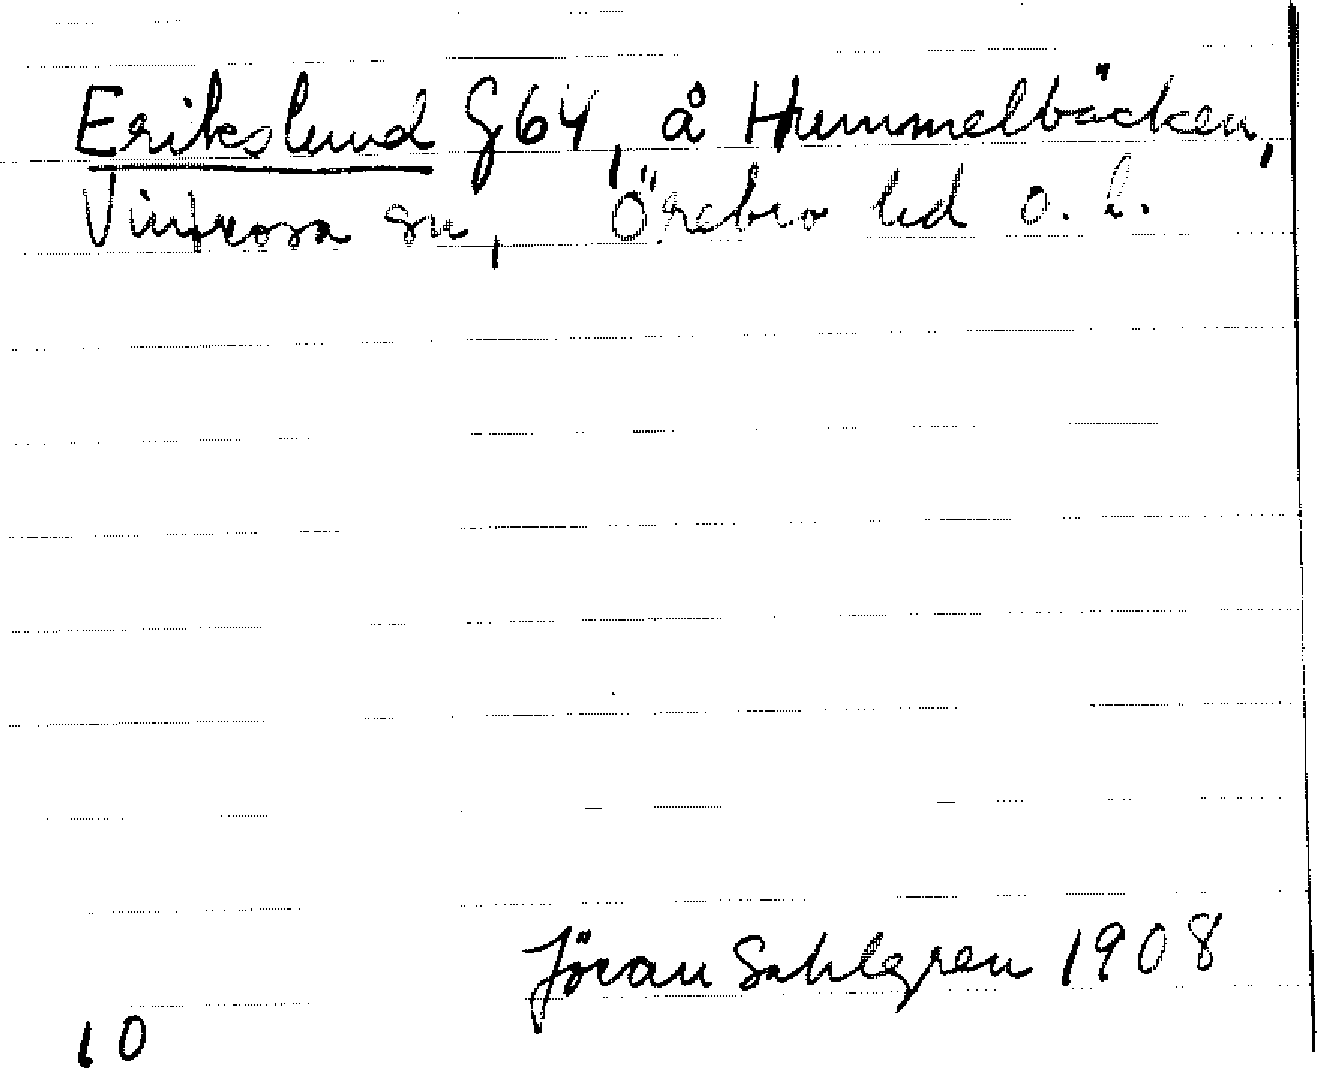 Erikslund G64, å Hummelbäcken,
Vintrosa sn, Örebro hd o. l.
Jöran Sahlgren 1908
10